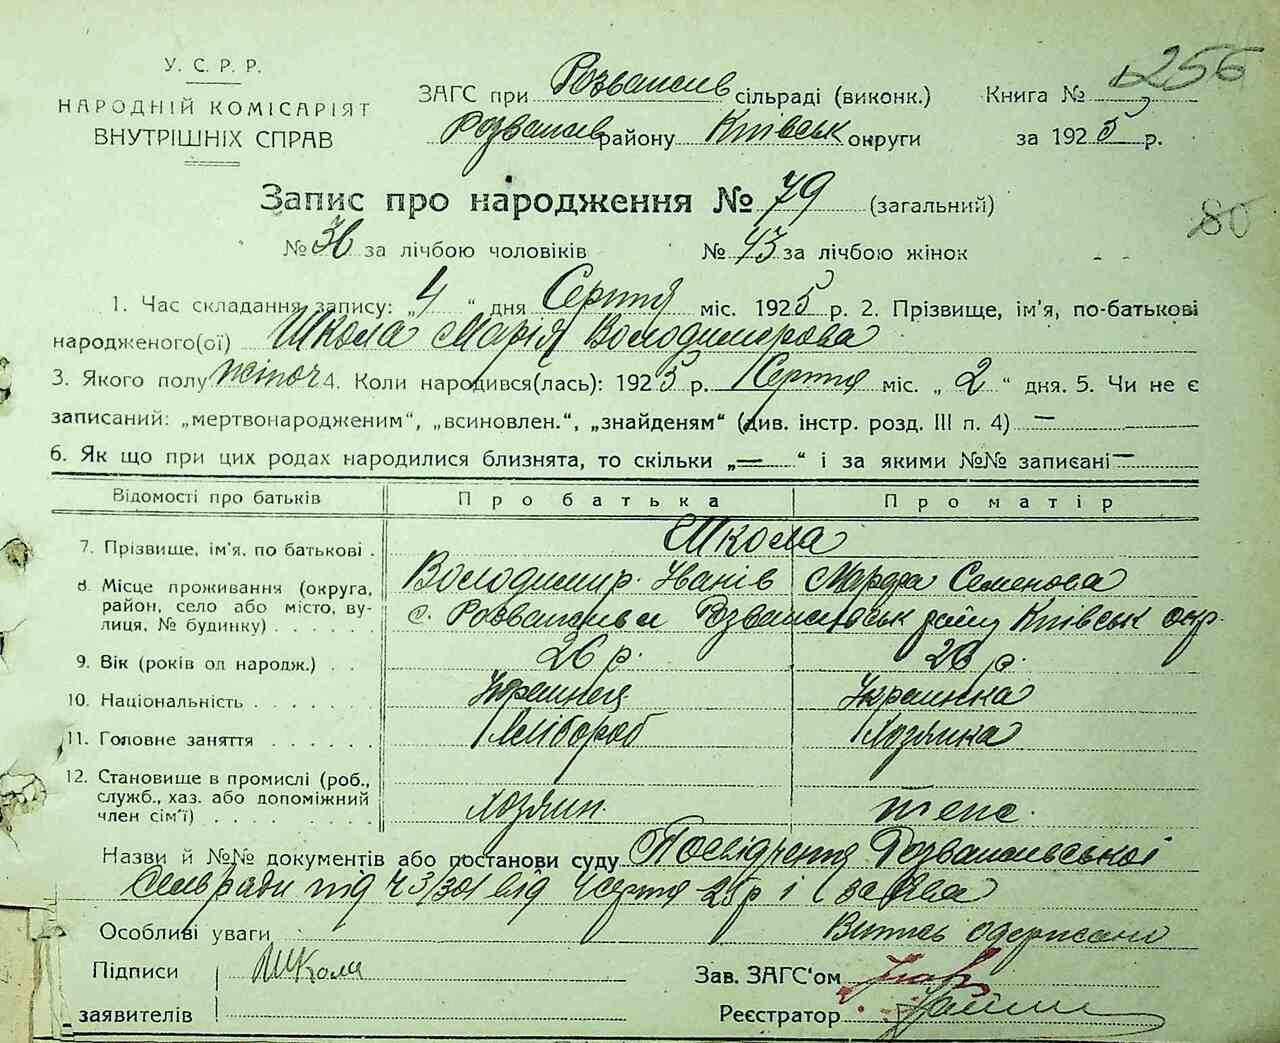 У. С. Р. Р.
НАРОДНІЙ КОМІСАРІЯТ
ВНУТРІШНІХ СПРАВ
ЗАГС при Розважів сільраді (виконк.) Книга № 256
Розважів району Київськ округи за 1925 р.
Запис про народження № 79 (загальний)
80
№ 36 за лічбою чоловіків № 43 за лічбою жінок
1. Час складання запису: „4“ дня Серпня міс. 1925 р. 2. Прізвище, ім'я, по-батькові
народженого(ої) Школа Марія Володимерова
3. Якого полу жіноч 4. Коли народився(лась): 1925 р. Серпня міс. „2“ дня. 5. Чи не є
записаний: „мертвонародженим“, „всиновлен.“, „знайденям“ (див. інстр. розд. III п. 4) —
6. Як що при цих родах народилися близнята, то скільки „—“ і за якими №№ записані —
Відомості про батьків Про батька Про матір
7. Прізвище, ім'я, по батькові . Школа
Володимир Іванів Марфа Семенова
8. Місце проживання (округа,
район, село або місто, ву-
лиця, № будинку) . . . . . . с. Розважів Розважівськ району Київськ окр.
9. Вік (років од народж.) . . 26 р. 26 р.
10. Національність . . . . . . . Українець Українка
11. Головне заняття . . . . . . Хлібороб Хозяйка
12. Становище в промислі (роб.,
служб., хаз. або допоміжний
член сім'ї) . . . . . . . . . Хозяин член с.
Назви й №№ документів або постанови суду Посвідчення Розважівської
Сельради під ч 3/301 від 4 серпня 25 р і заява
Особливі уваги Витись одержано
Підписи Школа Зав. ЗАГС'ом
заявителів Реєстратор